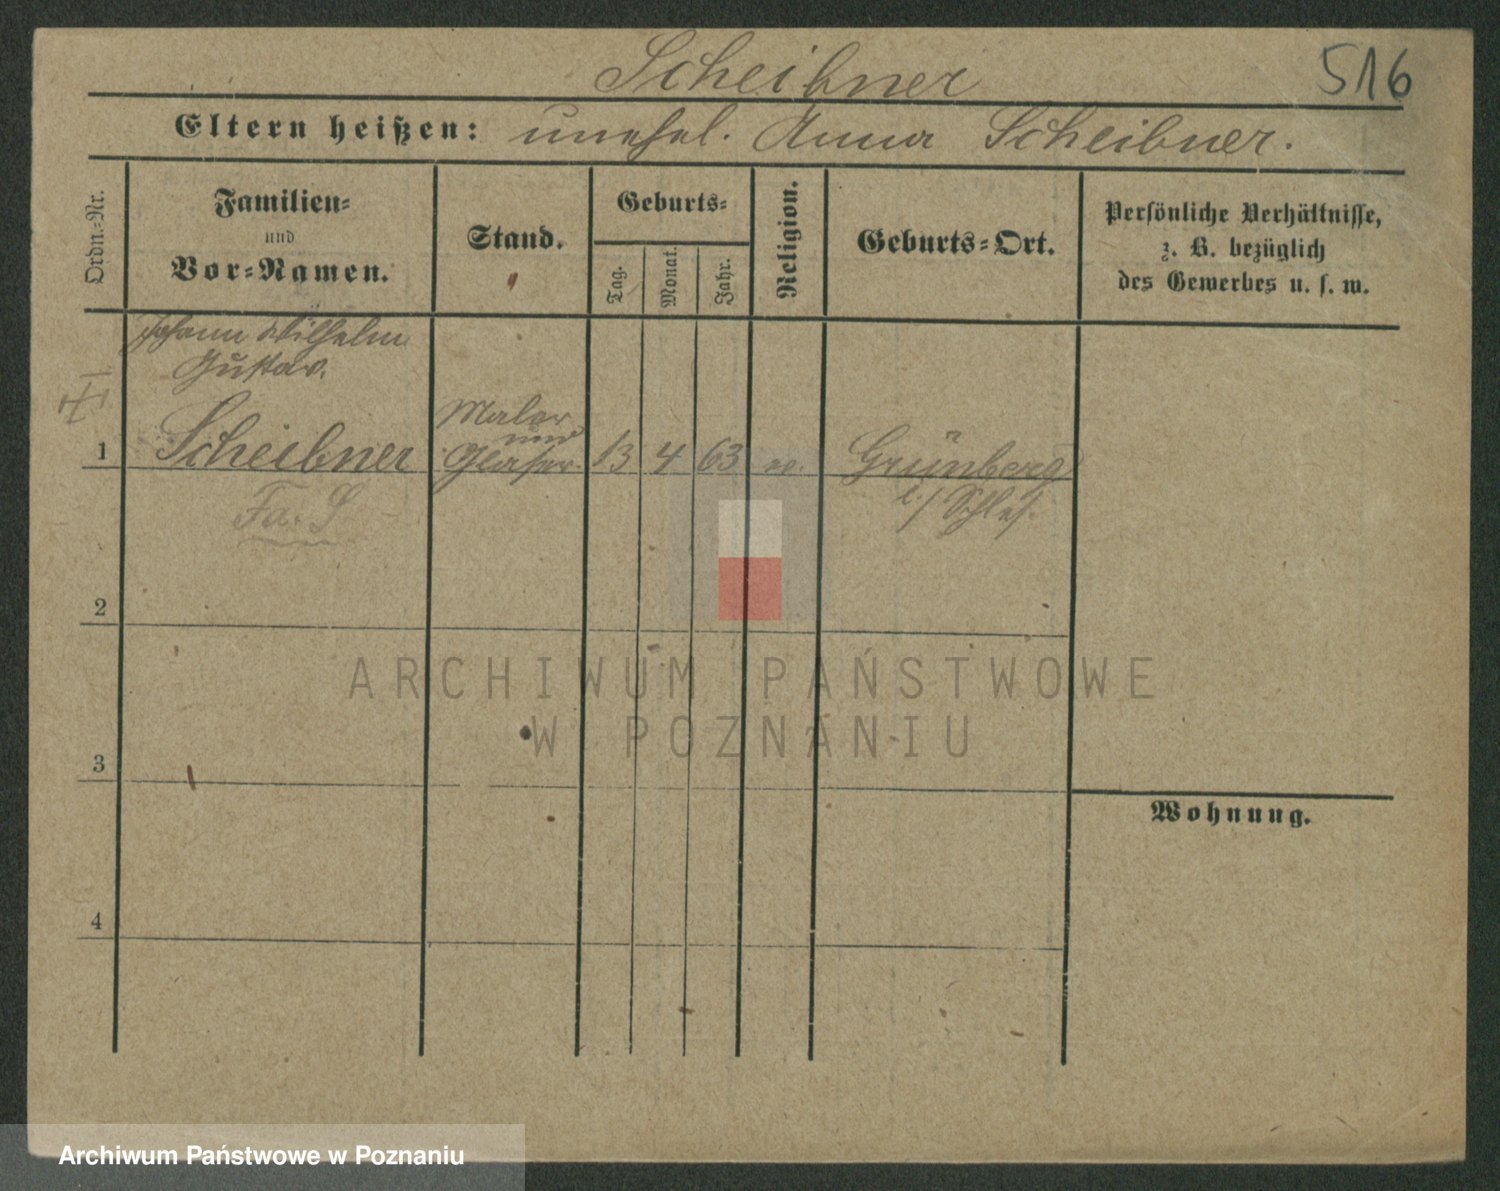 Scheibner
516
Eltern heißen: unehel. Anna Scheibner.
Ordn.-Nr.
Familien-
und
Vor-Namen.
Stand.
Geburts-
Tag.
Monat.
Jahr.
Religion.
Geburts-Ort.
Persönliche Verhältnisse,
z. B. bezüglich
des Gewerbes u. s. w.
Johann Wilhelm
Gustav.
1
Scheibner
Maler
und
Glaser.
13
4
63
ev.
Grünberg
i/Schles.
Fa. S
2
3
4
Wohnung.
ARCHIWUM PAŃSTWOWE
W POZNANIU
Archiwum Państwowe w Poznaniu